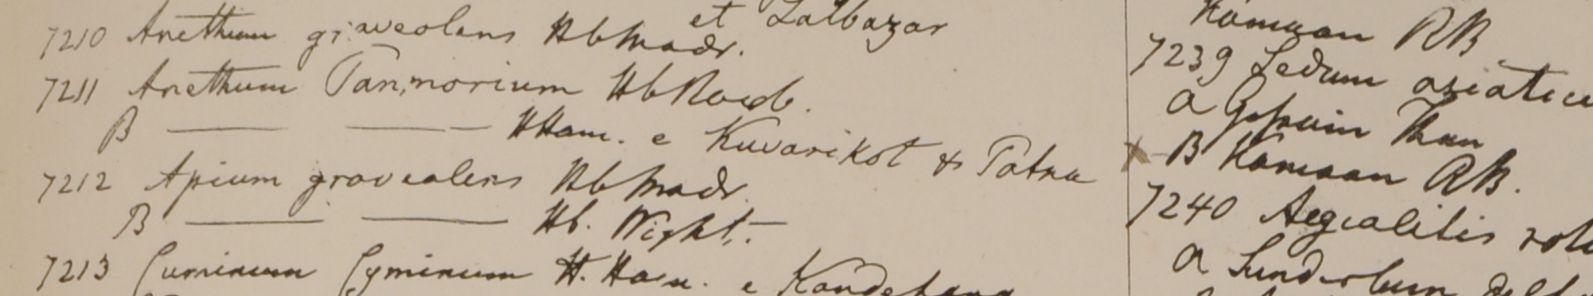 et Lalbazar
7210 Anethum graveolens HbMadr.
7211 Anethum Panmorium HbRoxb.
B — — HHam. e Kuvarikot & Patna
7212 Apium graveolens HbMadr.
B — — Hb. Wight.
7213 Cuminum Cyminum H. Ham. e
Kamaon RB
7239 Sedum asiaticu
a Than
B Kamaon RB.
7240 Aegialitis rotu
a Sunderbun